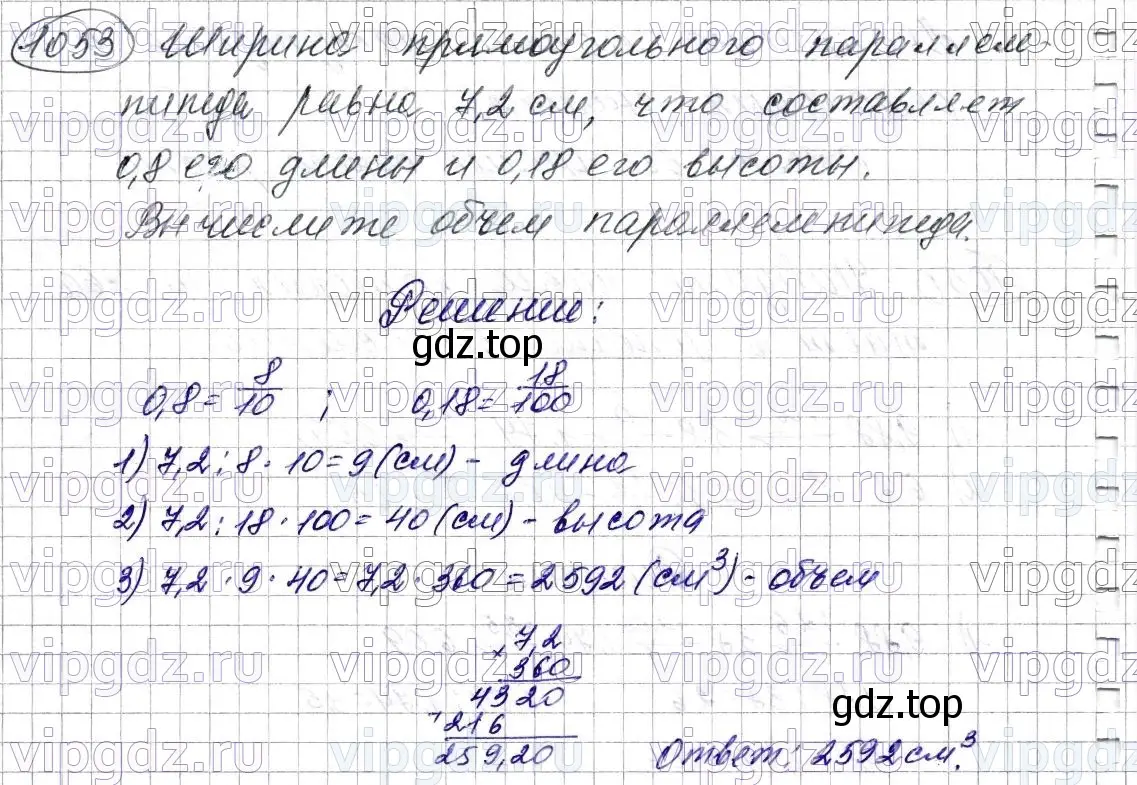 1053 Ширина прямоугольного параллеле-
пипеда равна 7,2 см, что составляет
0,8 его длины и 0,18 его высоты.
Вычислите объем параллелепипеда.
Решение:
gdz.top
0,8 = 8/10 ; 0,18 = 18/100
1) 7,2 : 8 · 10 = 9 (см) - длина
2) 7,2 : 18 · 100 = 40 (см) - высота
3) 7,2 · 9 · 40 = 7,2 · 360 = 2592 (см³) - объем
× 7,2
360
4320
+ 216
259,20
gdz.top
Ответ: 2592 см³.
vipgdz.ru